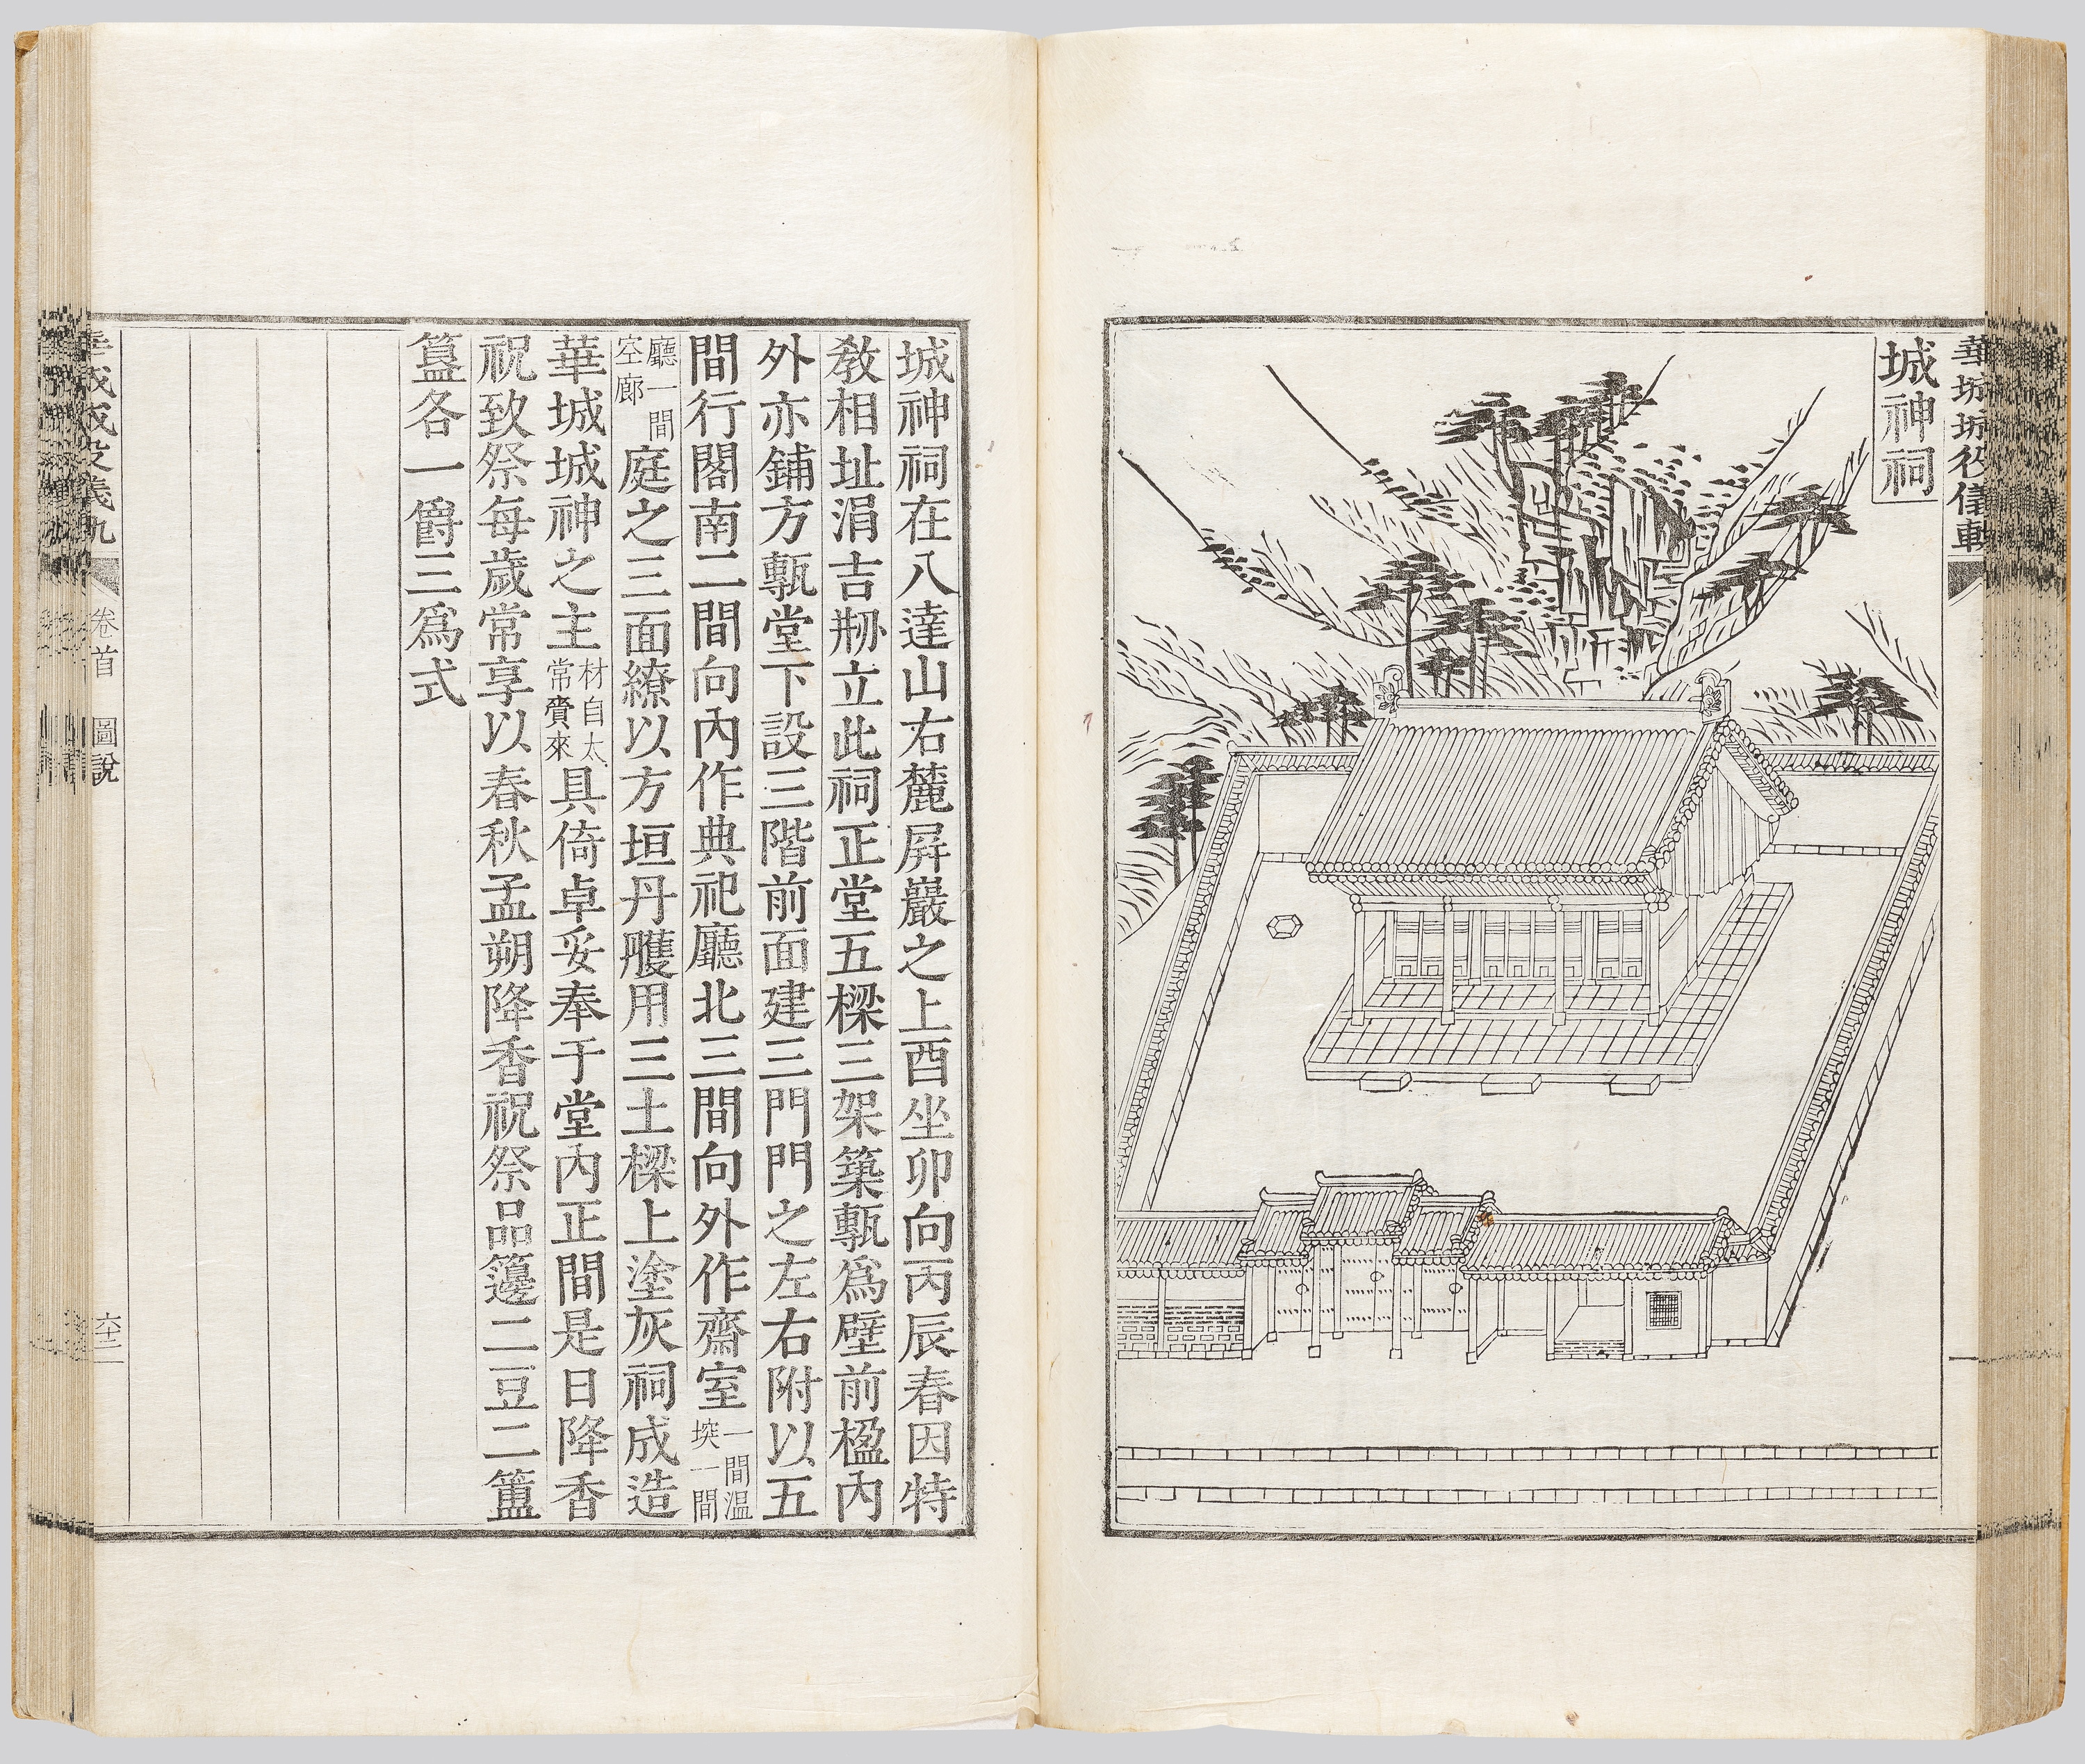 華城城役儀軌
城神祠
城神祠在八達山右麓屛巖之上酉坐卯向丙辰春因特
敎相址涓吉刱立此祠正堂五樑三架築甎爲壁前楹內
外亦鋪方甎堂下設三階前面建三門門之左右附以五
間行閣南二間向內作典祀廳北三間向外作齋室一間温堗一間
廳一間空廊庭之三面繚以方垣丹雘用三土樑上塗灰祠成造
華城城神之主材自太常賫來具倚卓妥奉于堂內正間是日降香
祝致祭每歲常享以春秋孟朔降香祝祭品籩二豆二簠
簋各一爵三爲式
華城城役儀軌 卷首 圖說 六十二